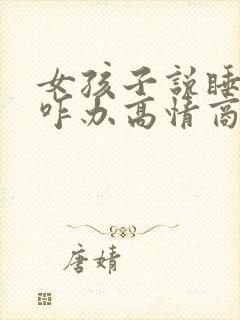 女孩子说睡
咋办高情商
唐婧